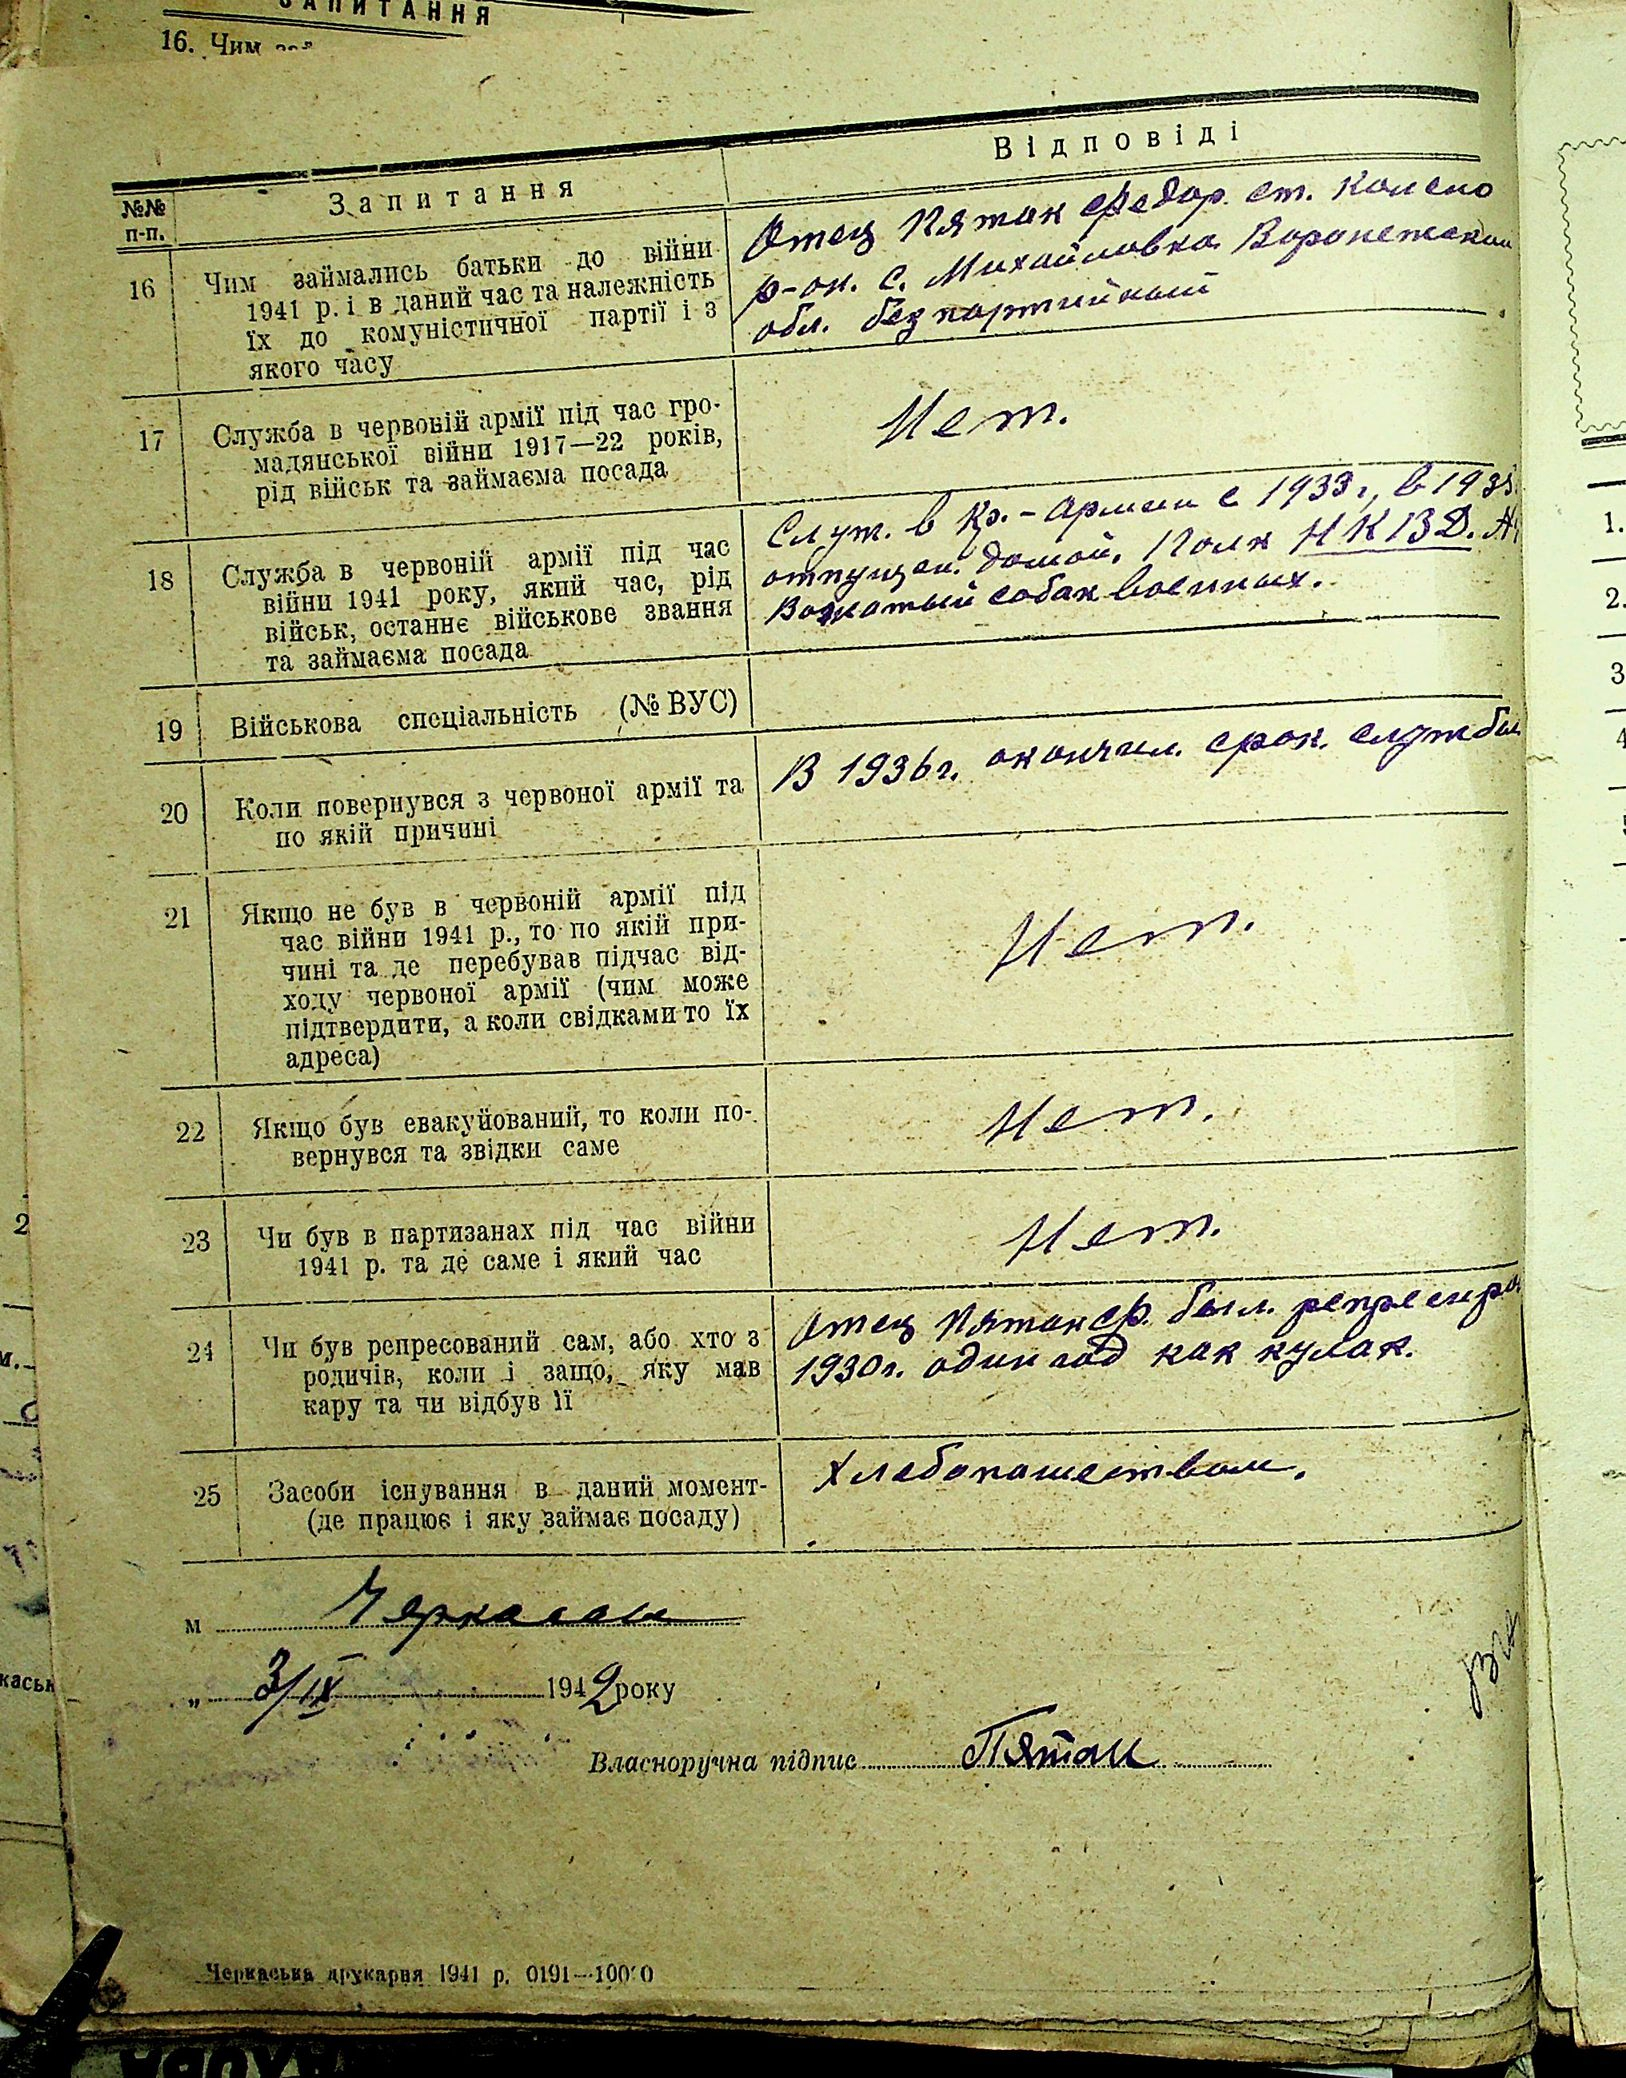 ЗАПИТАННЯ
16. Чим
№№ п-п.
Запитання
Відповіді
16
Чим займались батьки до війни
1941 р. і в даний час та належність
їх до комуністичної партії і з
якого часу
Отец Пятак Федор. ст. Колено
р-он. с. Михайловка Воронежской
обл. безпартийный
17
Служба в червоній армії під час гро-
мадянської війни 1917—22 років,
рід військ та займаєма посада
Нет.
18
Служба в червоній армії під час
війни 1941 року, який час, рід
військ, останнє військове звання
та займаєма посада
Служ. в Кр.-Армии с 1933 г., в 193
отпущен. домой. Полк НКВД.
Вожатый собак военных.
19
Військова спеціальність (№ ВУС)
20
Коли повернувся з червоної армії та
по якій причині
В 1936 г. окончил. срок. службы
21
Якщо не був в червоній армії під
час війни 1941 р., то по якій при-
чині та де перебував підчас від-
ходу червоної армії (чим може
підтвердити, а коли свідками то їх
адреса)
Нет.
22
Якщо був евакуйований, то коли по-
вернувся та звідки саме
Нет.
23
Чи був в партизанах під час війни
1941 р. та де саме і який час
Нет.
24
Чи був репресований сам, або хто з
родичів, коли і защо, яку мав
кару та чи відбув її
Отец Пятак Ф. был. репресиро
1930 г. один год как кулак.
25
Засоби існування в даний момент-
(де працює і яку займає посаду)
Хлебопашеством.
м Черкассы
„ 3/IX 1942 року
Власноручна підпис Пятак
Черкаська друкарня 1941 р. 0191—10000
1.
2.
3
4
5
2
м.
каськ